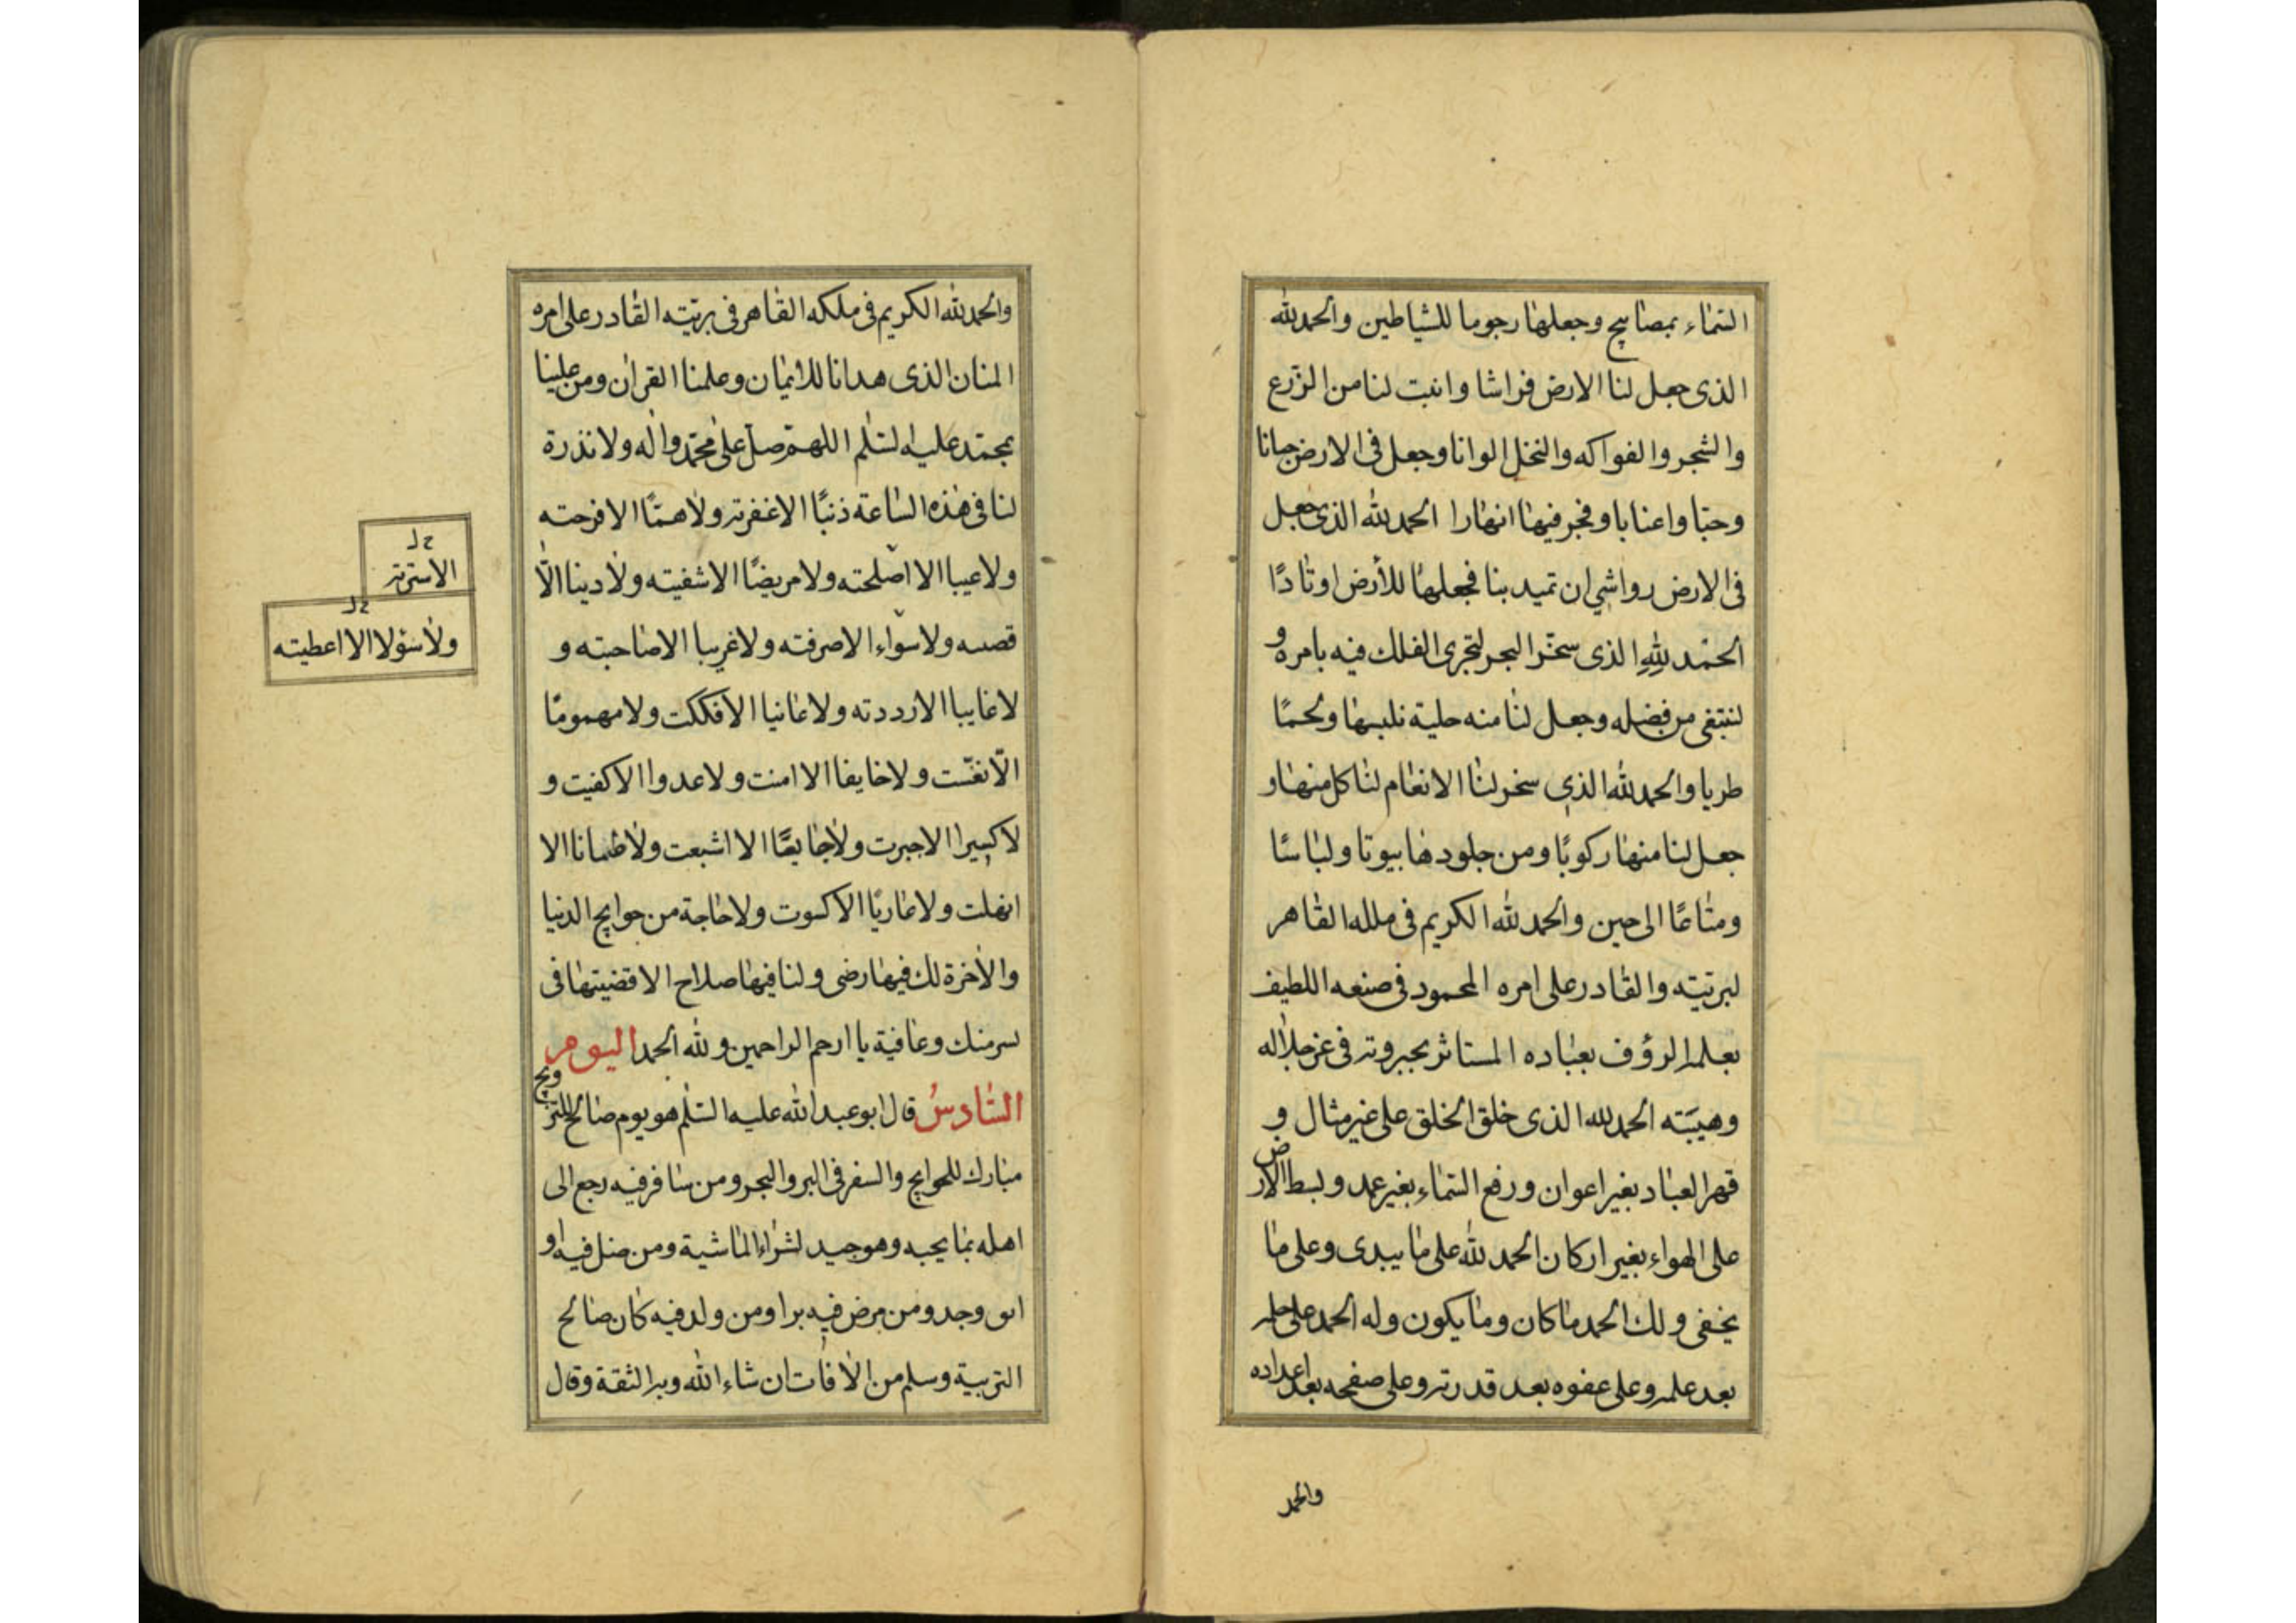 السماء بمصابيح وجعلها رجوما للشياطين والحمد لله
الذى جعل لنا الارض فراشا وانبت لنا من الزرع
والشجر والفواكه والنخل الوانا وجعل فى الارض جنانا
وحبا واعنابا وفجر فيها انهارا الحمد لله الذى جعل
فى الارض رواشي ان تميد بنا فجعلها للأرض اوتادًا
الحمد لِلّهِ الذى سخّر البحر لتجرى الفلك فيه بامره و
لنبتغى من فضله وجعل لنا منه حلية نلبسها ولحمًا
طريا والحمد لله الذى سخر لنا الانعام لنا كل منها و
جعل لنا منها ركوبًا ومن جلودها بيوتا ولباسًا
ومتاعًا الى حين والحمد لله الكريم فى ملله القاهر
لبريّته والقادر على امره المحمود فى صنعه اللطيف
بعلمه الرؤف بعباده المستاثر بجبروته فى عز جلاله
وهيبَته الحمد لله الذى خلق الخلق على غير مثال و
قهر العباد بغير اعوان ورفع السماء بغير عمد وبسط الارض
على الهواء بغير اركان الحمد لله على ما يبدى وعلى ما
يخفى ولك الحمد ما كان وما يكون وله الحمد على حلمه
بعد علمه وعلى عفوه بعد قدرته وعلى صفحه بعد اعداده
والحمد
والحمد لله الكريم فى ملكه القاهر فى بريّته القادر على امره
المنان الذى هدانا للايمان وعلمنا القران ومن علينا
بمحمّد عليه السّلم اللهمّ صلّ على محمّد واله ولا نذرة
لنا فى هذه الساعة ذنبًا الا غفرته ولا همّا الا فرحته
ولا عيبا الا اصلحته ولا مريضًا الا شفيته ولا دينا الّا
قصىه ولا سواء الا صرفته ولا غريبا الا صاحبته و
لا غايبا الا رددته ولا عانيا الا فككت ولا مهمومًا
الّا نغّست ولا خايفا الا امنت ولا عدوا الا كفيت و
لا كسيرا الا جبرت ولا جايعًا الا اشبعت ولا ظمانا الا
انهلت ولا عاريًا الا كسوت ولا حاجة من حوايج الدنيا
والاخرة لك فيها رضى ولنا فيها صلاح الا قضيتها فى
يسر منك وعافية يا ارحم الراحمين ولله الحمد اليوم
السّادسُ قال ابو عبد الله عليه السّلم هو يوم صالح للتزويج
مبارك للحوايج والسفر فى البر والبحر ومن سافر فيه رجع الى
اهله بما يحبه وهو جيد لشراء الماشية ومن ضل فيه او
ابق وجد ومن مرض فيه برا ومن ولد فيه كان صالح
التربية وسلم من الافات ان شاء الله وبه الثقة وقال
خ ل
الا سترته
خ ل
ولا سؤلا الا اعطيته